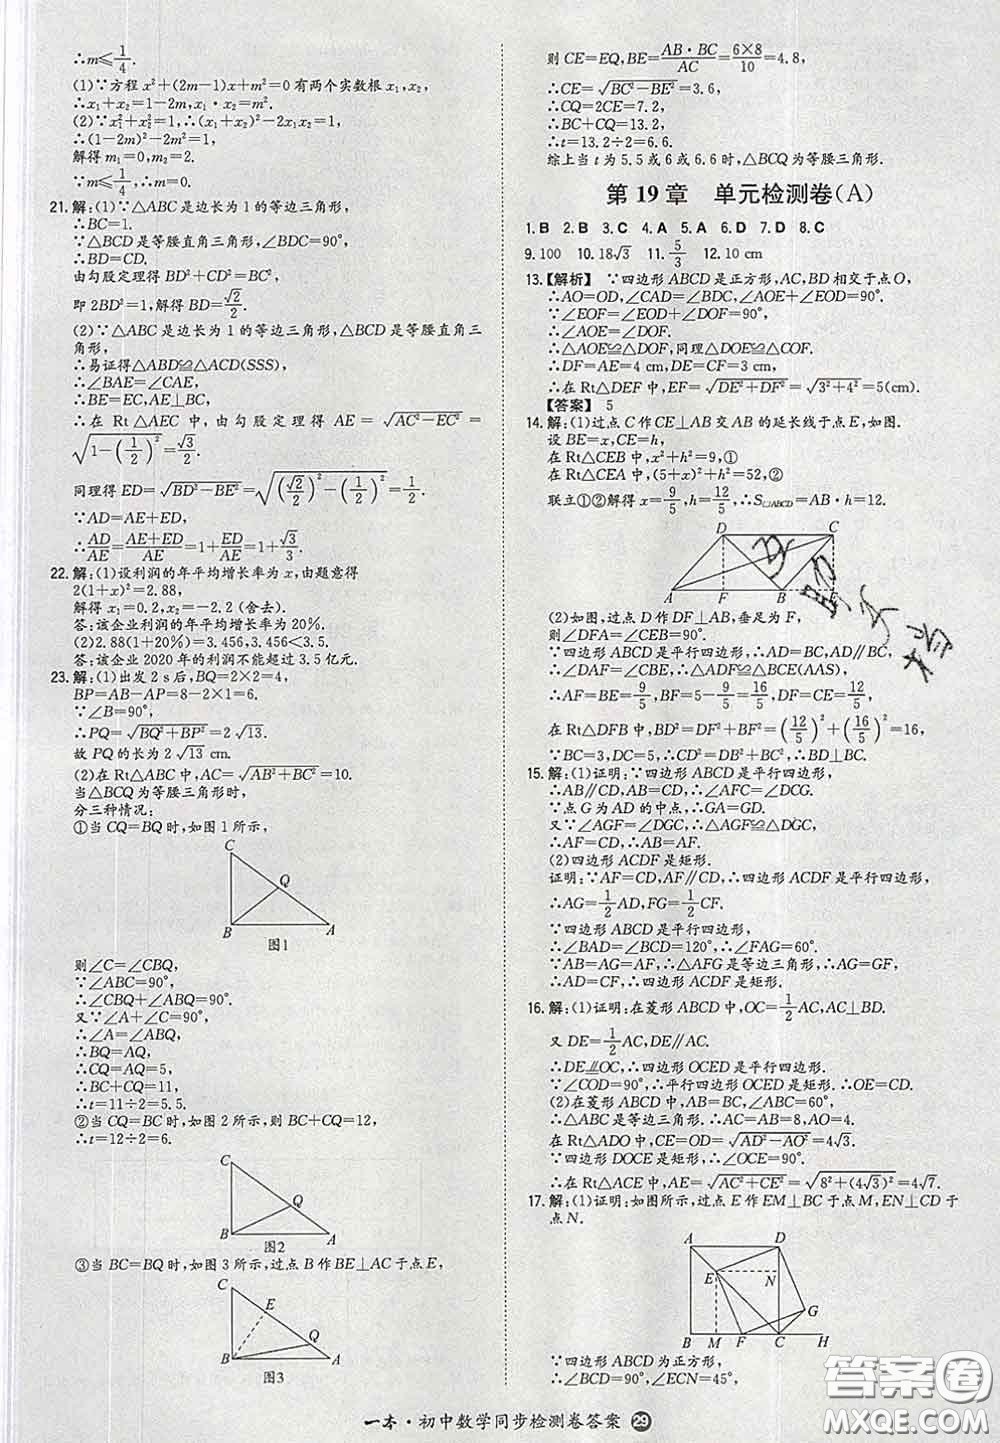 ∴m≤1/4.
(1)∵方程 x²+(2m−1)x+m²=0有两个实数根 x₁,x₂,
∴x₁+x₂=1−2m,x₁·x₂=m².
(2)∵x₁²+x₂²=1,∴(x₁+x₂)²−2x₁x₂=1,
∴(1−2m)²−2m²=1,
解得 m₁=0,m₂=2.
∵m≤1/4,∴m=0.
21.解:(1)∵△ABC是边长为1的等边三角形,
∴BC=1.
∵△BCD是等腰直角三角形,∠BDC=90°,
∴BD=CD.
由勾股定理得 BD²+CD²=BC²,
即 2BD²=1,解得 BD=√2/2.
(2)∵△ABC是边长为1的等边三角形,△BCD是等腰直角三
角形,
∴易证得△ABD≌△ACD(SSS),
∴∠BAE=∠CAE,
∴BE=EC,AE⊥BC,
∴在 Rt△AEC 中,由勾股定理得 AE=√(AC²−EC²)=
√(1−(1/2)²)=√3/2.
同理得 ED=√(BD²−BE²)=√((√2/2)²−(1/2)²)=1/2.
∵AD=AE+ED,
∴AD/AE=(AE+ED)/AE=1+ED/AE=1+√3/3.
22.解:(1)设利润的年平均增长率为 x,由题意得
2(1+x)²=2.88,
解得 x₁=0.2,x₂=−2.2(舍去).
答:该企业利润的年平均增长率为20%.
(2)2.88(1+20%)=3.456,3.456<3.5.
答:该企业2020年的利润不能超过3.5亿元.
23.解:(1)出发2 s后,BQ=2×2=4,
BP=AB−AP=8−2×1=6.
∵∠B=90°,
∴PQ=√(BQ²+BP²)=2√13.
故 PQ的长为2√13 cm.
(2)在Rt△ABC中,AC=√(AB²+BC²)=10.
当△BCQ为等腰三角形时,
分三种情况:
①当 CQ=BQ时,如图1所示,
C
Q
B
A
图1
则∠C=∠CBQ,
∵∠ABC=90°,
∴∠CBQ+∠ABQ=90°.
又∵∠A+∠C=90°,
∴∠A=∠ABQ,
∴BQ=AQ,
∴CQ=AQ=5,
∴BC+CQ=11,
∴t=11÷2=5.5.
②当 CQ=BC时,如图2所示,则 BC+CQ=12,
∴t=12÷2=6.
C
Q
B
A
图2
③当 BC=BQ时,如图3所示,过点 B作BE⊥AC于点E,
C
E
Q
B
A
图3
则 CE=EQ,BE=AB·BC/AC=6×8/10=4.8,
∴CE=√(BC²−BE²)=3.6,
∴CQ=2CE=7.2,
∴BC+CQ=13.2,
∴t=13.2÷2=6.6.
综上当 t为5.5或6或6.6时,△BCQ为等腰三角形.
第19章 单元检测卷(A)
1.B 2.B 3.C 4.A 5.A 6.D 7.D 8.C
9.100 10.18√3 11.5/3 12.10 cm
13.【解析】 ∵四边形ABCD是正方形,AC,BD相交于点O,
∴AO=OD,∠CAD=∠BDC,∠AOE+∠EOD=90°.
∵∠EOF=∠EOD+∠FOD=90°,
∴∠AOE=∠DOF.
∴△AOE≌△DOF,同理△DOE≌△COF.
∴DF=AE=4 cm,DE=CF=3 cm.
∴在 Rt△DEF中,EF=√(DE²+DF²)=√(3²+4²)=5(cm).
【答案】 5
14.解:(1)过点C作CE⊥AB交AB的延长线于点E,如图.
设 BE=x,CE=h,
在 Rt△CEB中,x²+h²=9,①
在 Rt△CEA中,(5+x)²+h²=52,②
联立①②解得 x=9/5,h=12/5,∴S▱ABCD=AB·h=12.
D
C
A
F
B
E
(2)如图,过点 D作DF⊥AB,垂足为F,
则∠DFA=∠CEB=90°.
∵四边形ABCD是平行四边形,∴AD=BC,AD∥BC,
∴∠DAF=∠CBE,∴△ADF≌△BCE(AAS),
∴AF=BE=9/5,BF=5−9/5=16/5,DF=CE=12/5,
在 Rt△DFB中,BD²=DF²+BF²=(12/5)²+(16/5)²=16,
∵BC=3,DC=5,∴CD²=DB²+BC²,∴BD⊥BC.
15.解:(1)证明:∵四边形ABCD是平行四边形,
∴AB∥CD,AB=CD,∴∠AFC=∠DCG.
∵点G为AD的中点,∴GA=GD.
又∵∠AGF=∠DGC,∴△AGF≌△DGC,
∴AF=CD,∴AB=AF.
(2)四边形ACDF是矩形.
证明:∵AF=CD,AF∥CD,∴四边形ACDF是平行四边形.
∴AG=1/2AD,FG=1/2CF.
∵四边形ABCD是平行四边形,
∴∠BAD=∠BCD=120°,∴∠FAG=60°.
∵AB=AG=AF,∴△AFG是等边三角形,∴AG=GF,
∴AD=CF,∴四边形ACDF是矩形.
16.解:(1)证明:在菱形ABCD中,OC=1/2AC,AC⊥BD.
又 DE=1/2AC,DE∥AC.
∴DE⫽OC,∴四边形OCED是平行四边形.
∵∠COD=90°,∴平行四边形OCED是矩形.
(2)在菱形ABCD中,AB=BC,∠ABC=60°,
∴△ABC是等边三角形,∴AC=AB=8,AO=4.
在 Rt△ADO中,CE=OD=√(AD²−AO²)=4√3.
∵四边形DOCE是矩形,
∴在 Rt△ACE中,AE=√(AC²+CE²)=√(8²+(4√3)²)=4√7.
17.解:(1)证明:如图所示,过点E作EM⊥BC于点M,EN⊥CD于
点N.
A
D
E
N
G
B
M
F
C
H
∵四边形ABCD为正方形,
∴∠BCD=90°,∠ECN=45°,
一本·初中数学同步检测卷答案 29
答案圈
MXQE.COM